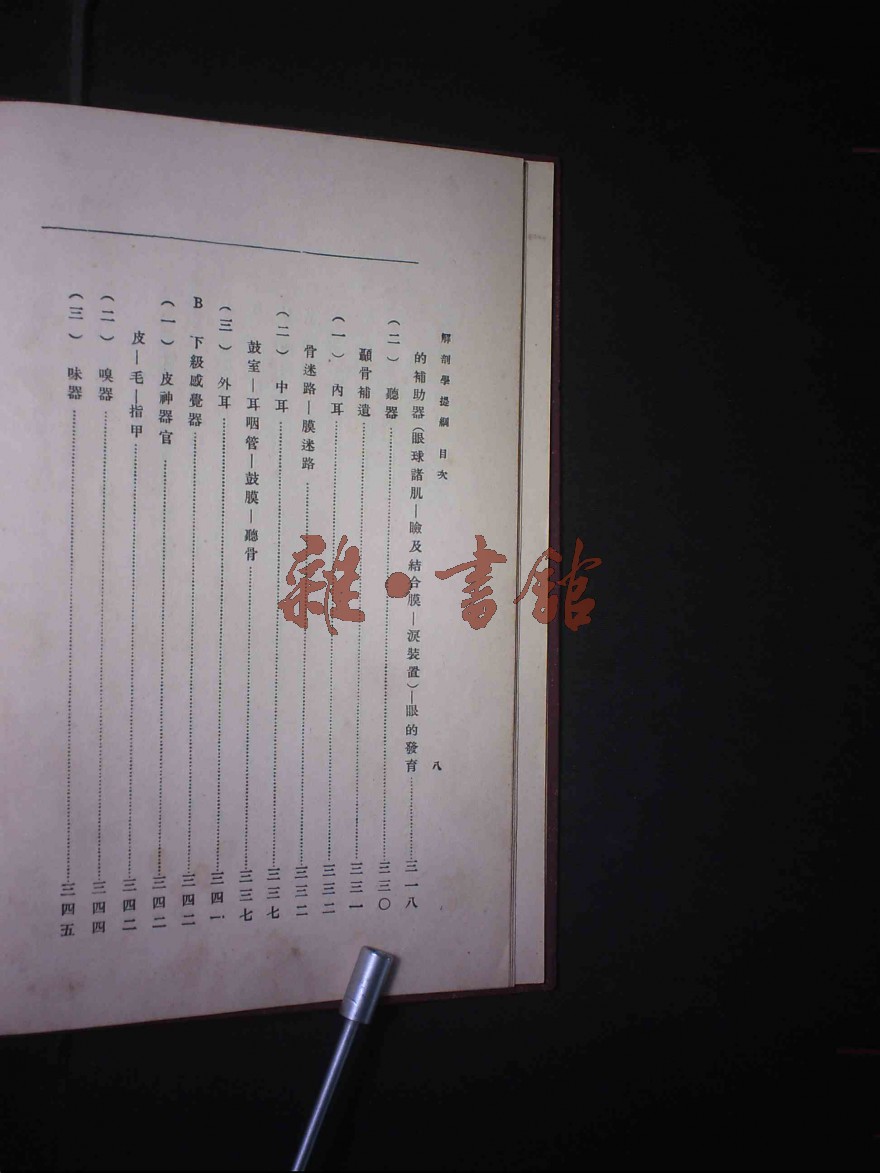 解剖學提綱 目次
八
的補助器(眼球諸肌—瞼及結合膜—淚裝置)—眼的發育………三一八
(二) 聽器………三三〇
顳骨補遺………三三一
(一) 內耳………三三二
骨迷路—膜迷路………三三二
(二) 中耳………三三七
鼓室—耳咽管—鼓膜—聽骨………三三七
(三) 外耳………三四一
B 下級感覺器………三四二
(一) 皮神器官………三四二
皮—毛—指甲………三四二
(二) 嗅器………三四四
(三) 味器………三四五
雜·書館